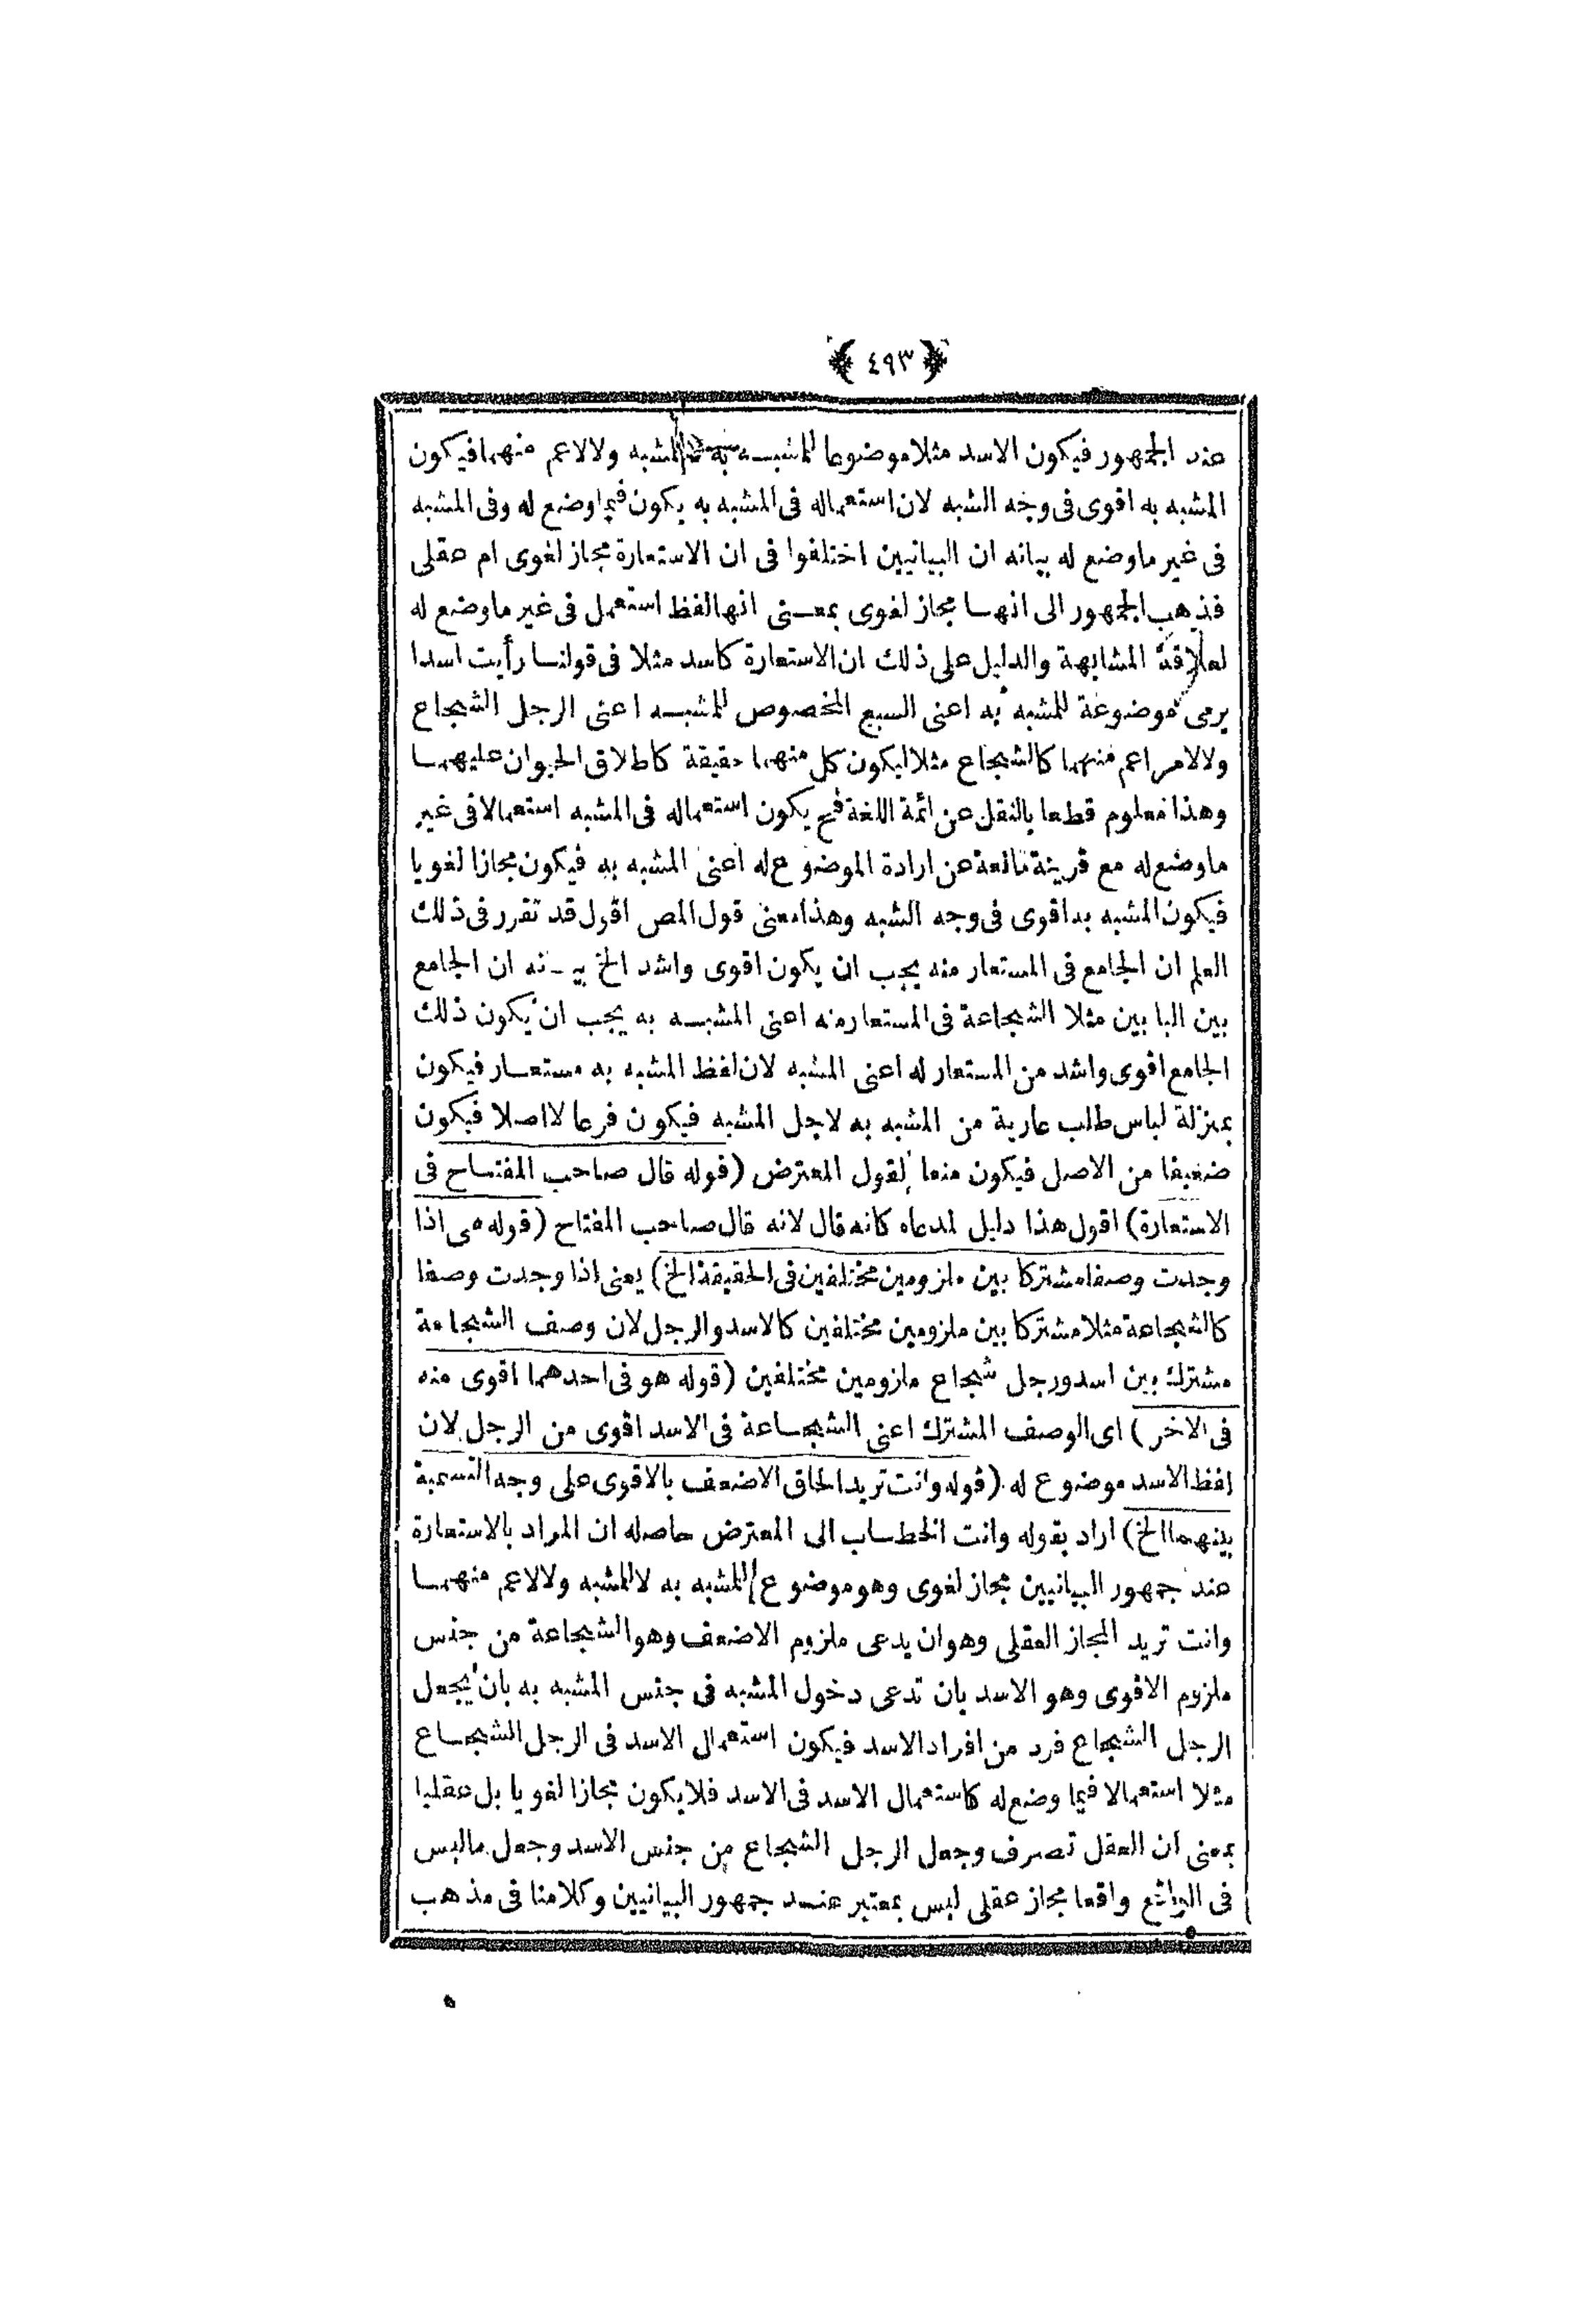 ﴿ ٤٩٣ ﴾
عند الجمهور فيكون الاسد مثلا موضوعا للمشبـــه به للمشبه ولا لاعم منهما فيكون
المشبه به اقوى فى وجه الشبه لان استعماله فى المشبه به يكون فيما وضع له وفى المشبه
فى غير ما وضع له بيانه ان البيانيين اختلفوا فى ان الاستعارة مجاز لغوى ام عقلى
فذهب الجمهور الى انهـا مجاز لغوى بمعــنى انها لفظ استعمل فى غير ما وضع له
لعلاقة المشابهة والدليل على ذلك ان الاستعارة كاسد مثلا فى قولنـا رأيت اسدا
يرمى موضوعة للمشبه به اعنى السبع المخصوص للمشبــه اعنى الرجل الشجاع
ولا لامر اعم منهما كالشجاع مثلا ليكون كل منهما حقيقة كاطلاق الحيوان عليهمـا
وهذا معلوم قطعا بالنقل عن ائمة اللغة فح يكون استعماله فى المشبه استعمالا فى غير
ما وضع له مع قرينة مانعة عن ارادة الموضوع له اعنى المشبه به فيكون مجازا لغويا
فيكون المشبه به اقوى فى وجه الشبه وهذا معنى قول المص اقول قد تقرر فى ذلك
العلم ان الجامع فى المستعار منه يجب ان يكون اقوى واشد الخ بيـانه ان الجامع
بين البابين مثلا الشجاعة فى المستعار منه اعنى المشبــه به يجب ان يكون ذلك
الجامع اقوى واشد من المستعار له اعنى المشبه لان لفظ المشبه به مستعــار فيكون
بمنزلة لباس طلب عارية من المشبه به لاجل المشبه فيكون فرعا لا اصلا فيكون
ضعيفا من الاصل فيكون منعا لقول المعترض (قوله قال صاحب المفتـاح فى
الاستعارة) اقول هذا دليل لمدعاه كانه قال لانه قال صاحب المفتاح (قوله هى اذا
وجدت وصفا مشتركا بين ملزومين مختلفين فى الحقيقة الخ) يعنى اذا وجدت وصفا
كالشجاعة مثلا مشتركا بين ملزومين مختلفين كالاسد والرجل لان وصف الشجاعة
مشترك بين اسد ورجل شجاع ملزومين مختلفين (قوله هو فى احدهما اقوى منه
فى الاخر) اى الوصف المشترك اعنى الشجـاعة فى الاسد اقوى من الرجل لان
لفظ الاسد موضوع له (قوله وانت تريد الحاق الاضعف بالاقوى على وجه التسمية
بينهما الخ) اراد بقوله وانت الخطـاب الى المعترض حاصله ان المراد بالاستعارة
عند جمهور البيانيين مجاز لغوى وهو موضوع للمشبه به لا للمشبه ولا لاعم منهمـا
وانت تريد المجاز العقلى وهو ان يدعى ملزوم الاضعف وهو الشجاعة من جنس
ملزوم الاقوى وهو الاسد بان تدعى دخول المشبه فى جنس المشبه به بان يجعل
الرجل الشجاع فرد من افراد الاسد فيكون استعمال الاسد فى الرجل الشجـاع
مثلا استعمالا فيما وضع له كاستعمال الاسد فى الاسد فلا يكون مجازا لغويا بل عقليا
بمعنى ان العقل تصرف وجعل الرجل الشجاع من جنس الاسد وجعل ما ليس
فى الواقع واقعا مجاز عقلى ليس بمعتبر عنـد جمهور البيانيين وكلامنا فى مذهب